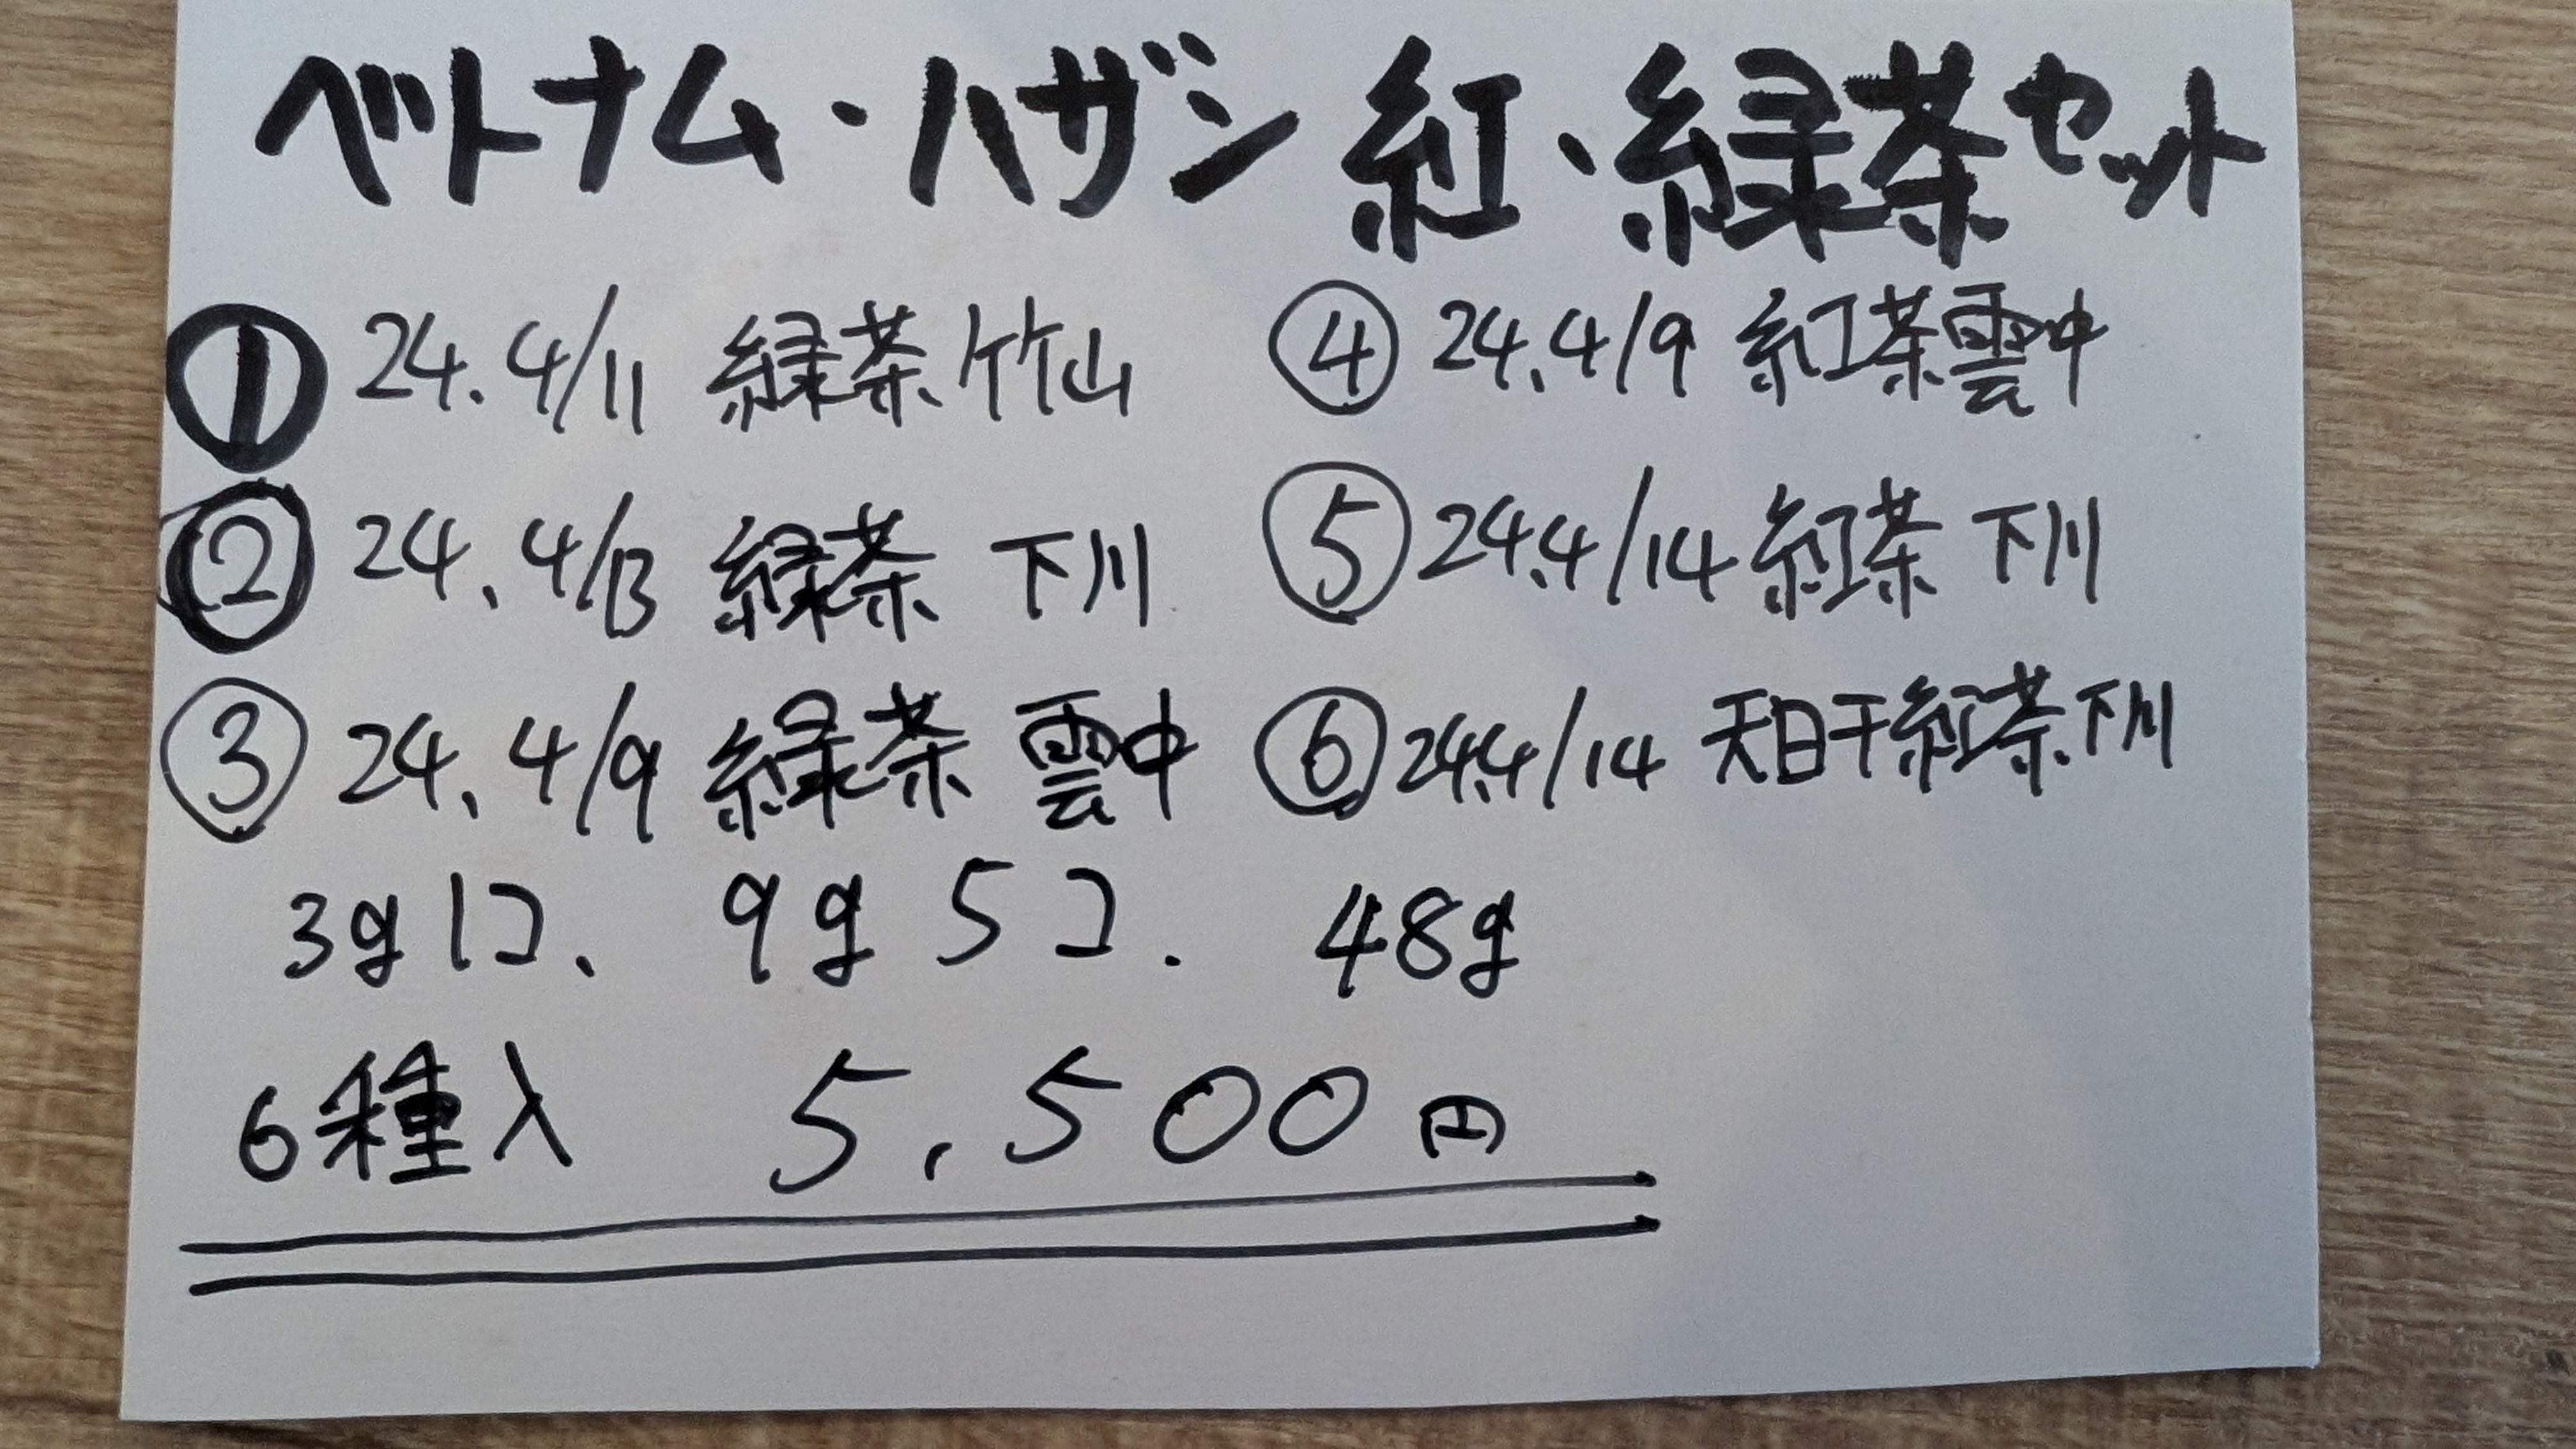 ベトナム・ハザン 紅、緑茶セット
① 24.4/11 緑茶 竹山
② 24.4/13 緑茶 下川
③ 24.4/9 緑茶 雲中
④ 24.4/9 紅茶雲中
⑤ 24.4/14 紅茶 下川
⑥ 24.4/14 天日干紅茶下川
3g1コ、 9g5コ. 48g
6種入 5,500円